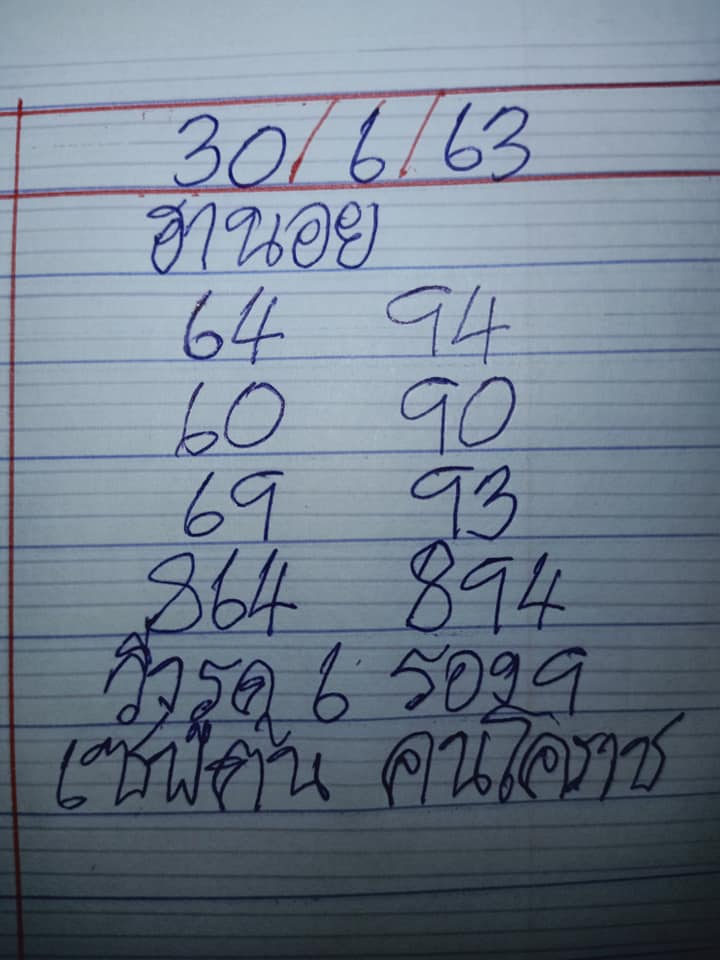 30/6/63
ฮานอย
64 94
60 90
69 93
864 894
วิ่งรูด 6 รอง 9
คนโคราช